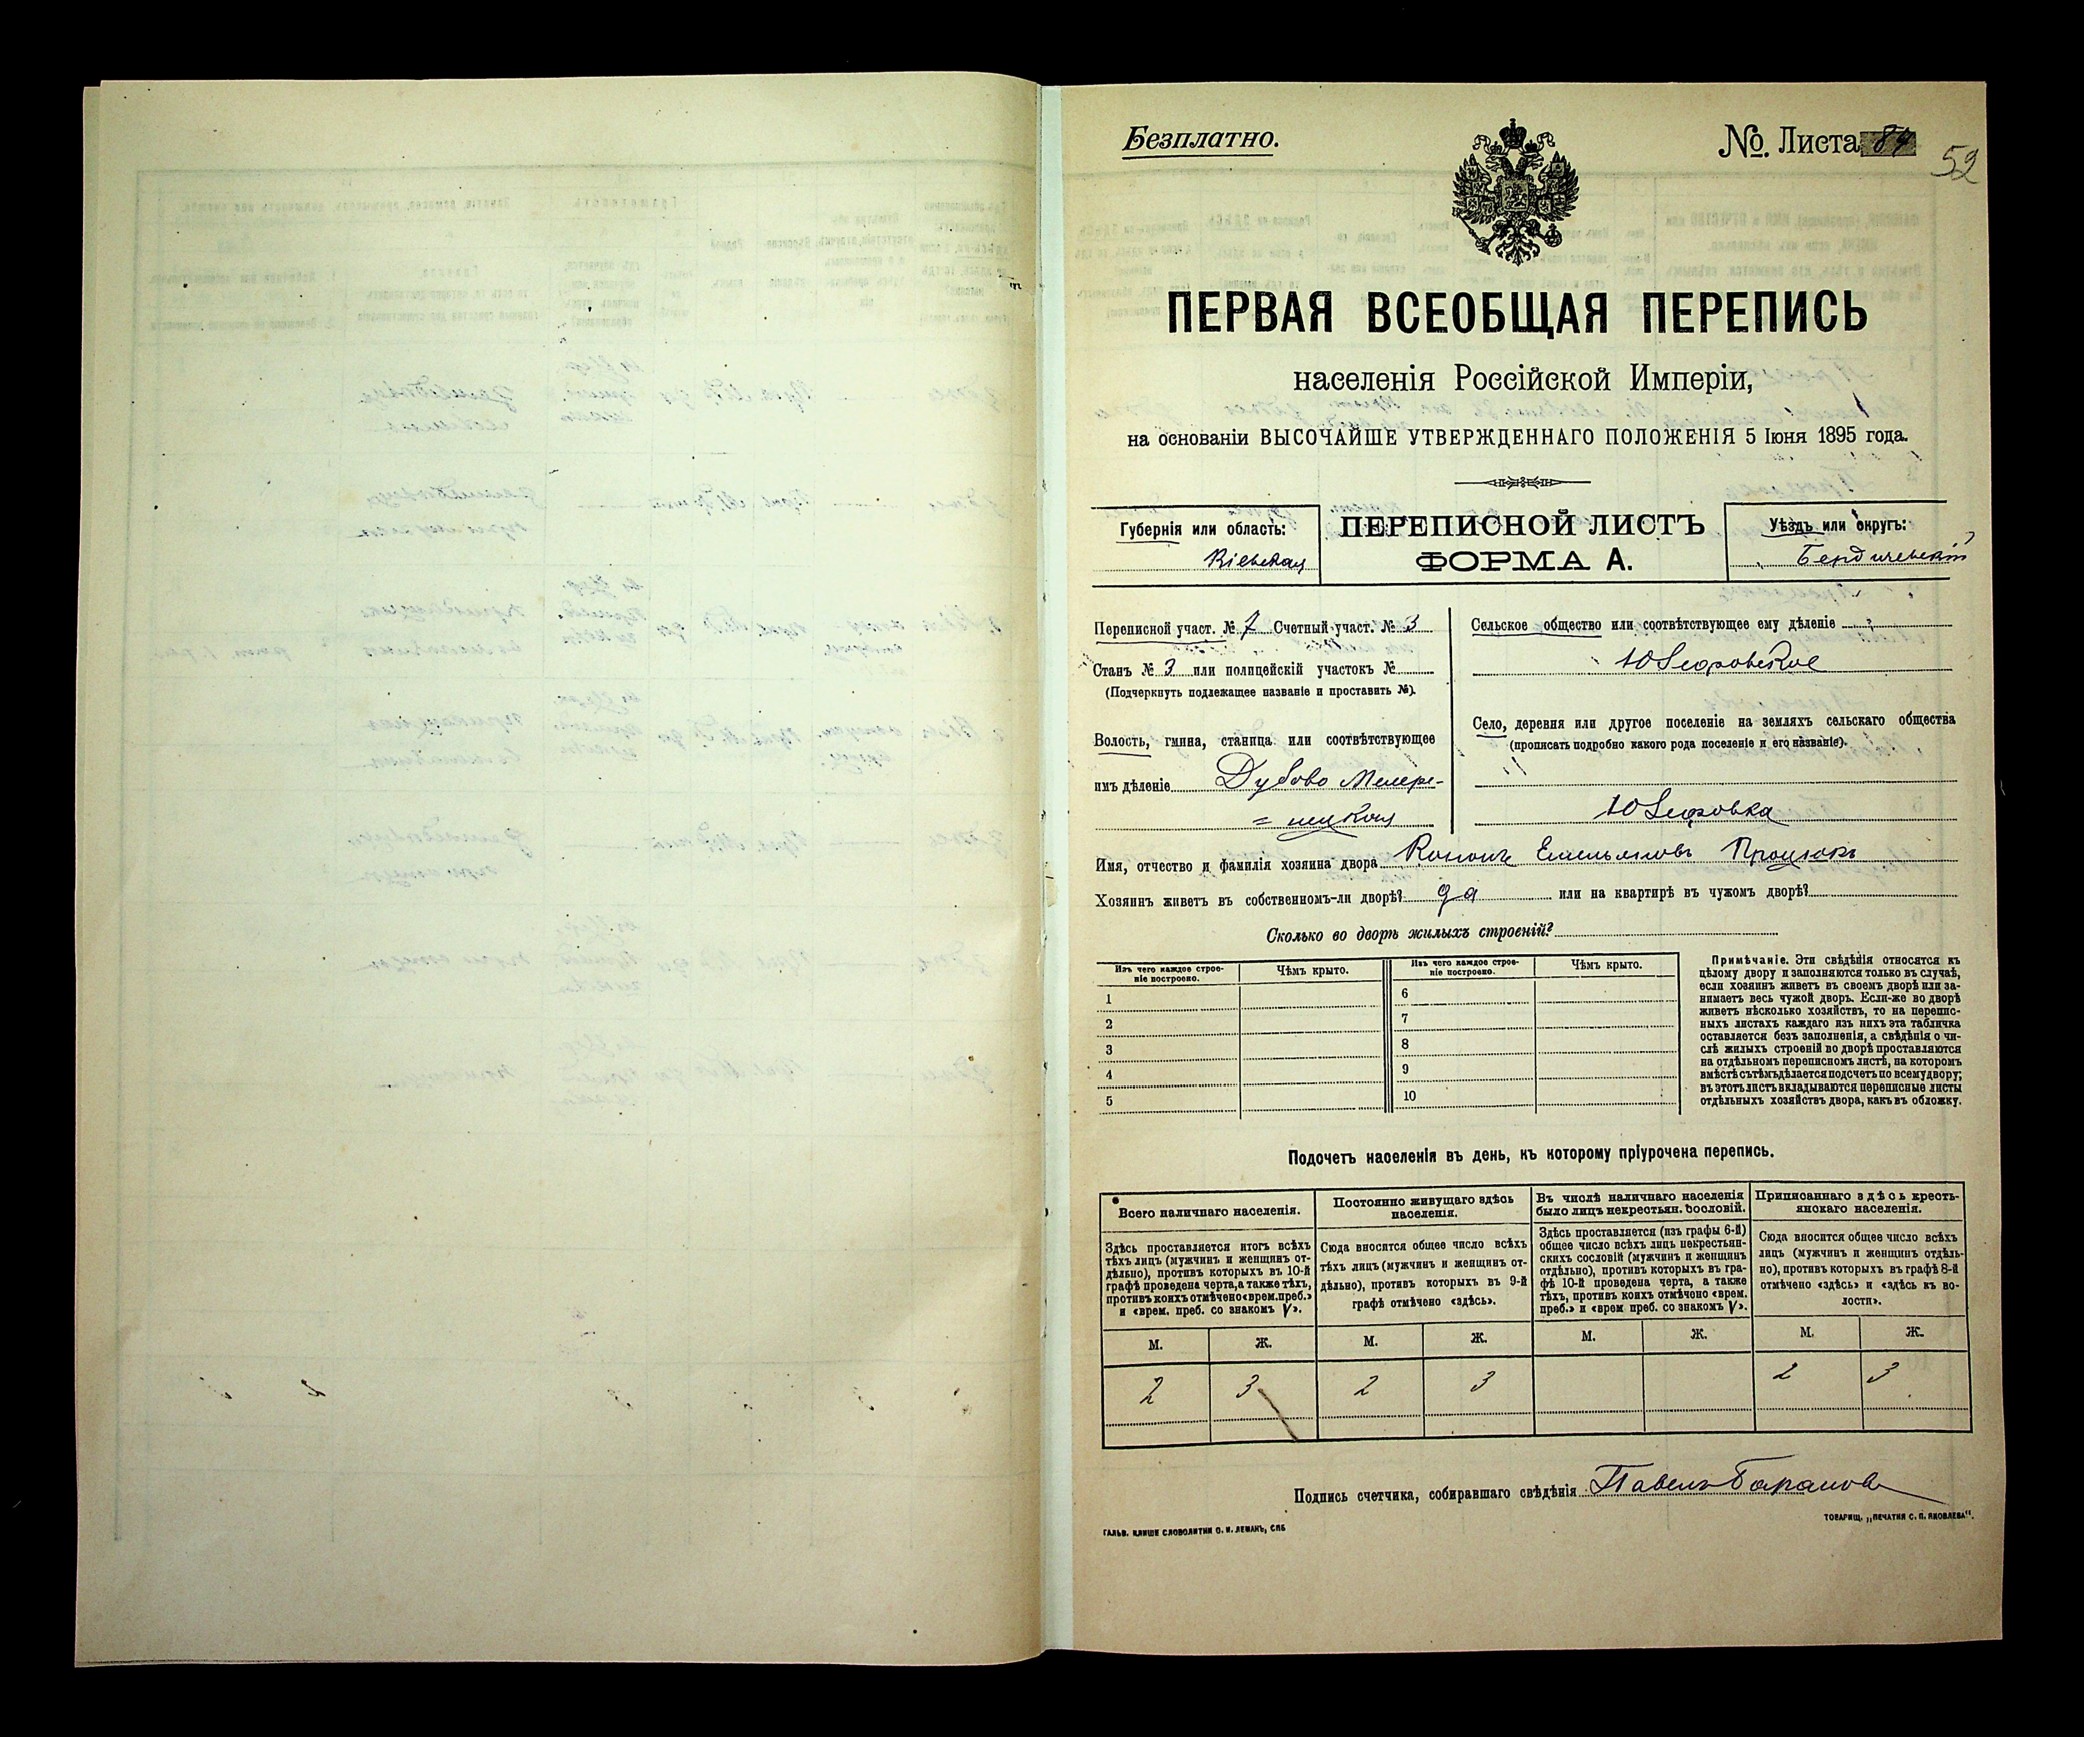 Безплатно.
№. Листа 84
52
ПЕРВАЯ ВСЕОБЩАЯ ПЕРЕПИСЬ
населенія Россійской Имперіи,
на основаніи ВЫСОЧАЙШЕ УТВЕРЖДЕННАГО ПОЛОЖЕНІЯ 5 Іюня 1895 года.
Губернія или область:
Кіевская
ПЕРЕПИСНОЙ ЛИСТЪ
ФОРМА А.
Уѣздъ или округъ:
Бердичевскій
Переписной участ. № 7 Счетный участ. № 3
Станъ № 3 или полицейскій участокъ №
(Подчеркнуть подлежащее названіе и проставить №).
Волость, гмина, станица или соотвѣтствующее
имъ дѣленіе Дубово Мехере-
= инцкая
Сельское общество или соотвѣтствующее ему дѣленіе
Юзефовское
Село, деревня или другое поселеніе на земляхъ сельскаго общества
(прописать подробно какого рода поселеніе и его названіе).
Юзефовка
Имя, отчество и фамилія хозяина двора Кононъ Емельяновъ Процюкъ
Хозяинъ живетъ въ собственномъ-ли дворѣ? да или на квартирѣ въ чужомъ дворѣ?
Сколько во дворѣ жилыхъ строеній?
Изъ чего каждое строе-
ніе построено.
Чѣмъ крыто.
Изъ чего каждое строе-
ніе построено.
Чѣмъ крыто.
1
2
3
4
5
6
7
8
9
10
Примѣчаніе. Эти свѣдѣнія относятся къ
цѣлому двору и заполняются только въ случаѣ,
если хозяинъ живетъ въ своемъ дворѣ или за-
нимаетъ весь чужой дворъ. Если-же во дворѣ
живетъ нѣсколько хозяйствъ, то на перепис-
ныхъ листахъ каждаго изъ нихъ эта табличка
оставляется безъ заполненія, а свѣдѣнія о чи-
слѣ жилыхъ строеній во дворѣ проставляются
на отдѣльномъ переписномъ листѣ, на которомъ
вмѣстѣ съ тѣмъ дѣлается подсчетъ по всему двору;
въ этотъ листъ вкладываются переписные листы
отдѣльныхъ хозяйствъ двора, какъ въ обложку.
Подочетъ населенія въ день, къ которому пріурочена перепись.
Всего наличнаго населенія.
Здѣсь проставляется итогъ всѣхъ
тѣхъ лицъ (мужчинъ и женщинъ от-
дѣльно), противъ которыхъ въ 10-й
графѣ проведена черта, а также тѣхъ,
противъ коихъ отмѣчено «врем. преб.»
и «врем. преб. со знакомъ V».
Постоянно живущаго здѣсь
населенія.
Сюда вносится общее число всѣхъ
тѣхъ лицъ (мужчинъ и женщинъ от-
дѣльно), противъ которыхъ въ 9-й
графѣ отмѣчено «здѣсь».
Въ числѣ наличнаго населенія
было лицъ некрестьян. сословій.
Здѣсь проставляется (изъ графы 6-й)
общее число всѣхъ лицъ некрестьян-
скихъ сословій (мужчинъ и женщинъ
отдѣльно), противъ которыхъ въ гра-
фѣ 10-й проведена черта, а также
тѣхъ, противъ коихъ отмѣчено «врем.
преб.» и «врем преб. со знакомъ V».
Приписаннаго здѣсь кресть-
янскаго населенія.
Сюда вносится общее число всѣхъ
лицъ (мужчинъ и женщинъ отдѣль-
но), противъ которыхъ въ графѣ 8-й
отмѣчено «здѣсь» и «здѣсь къ во-
лости».
М. Ж. М. Ж. М. Ж. М. Ж.
2 3 2 3 2 3
Подпись счетчика, собиравшаго свѣдѣнія Павелъ Баранов
ГАЛЬВ. КЛИШЕ СЛОВОЛИТНИ О. И. ЛЕМАНЪ, СПБ
ТОВАРИЩ. „ПЕЧАТНЯ С. П. ЯКОВЛЕВА".